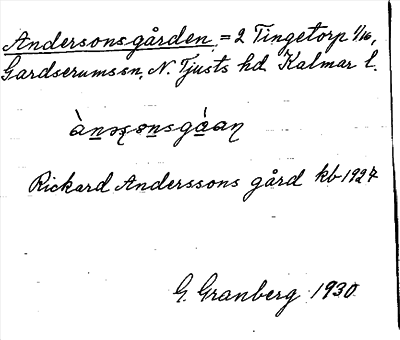 Andersonsgården = 2 Tingetorp 1/16,
Gardserums sn. N. Tjusts hd Kalmar l.
Rickard Anderssons gård kb 1927
G. Granberg 1930